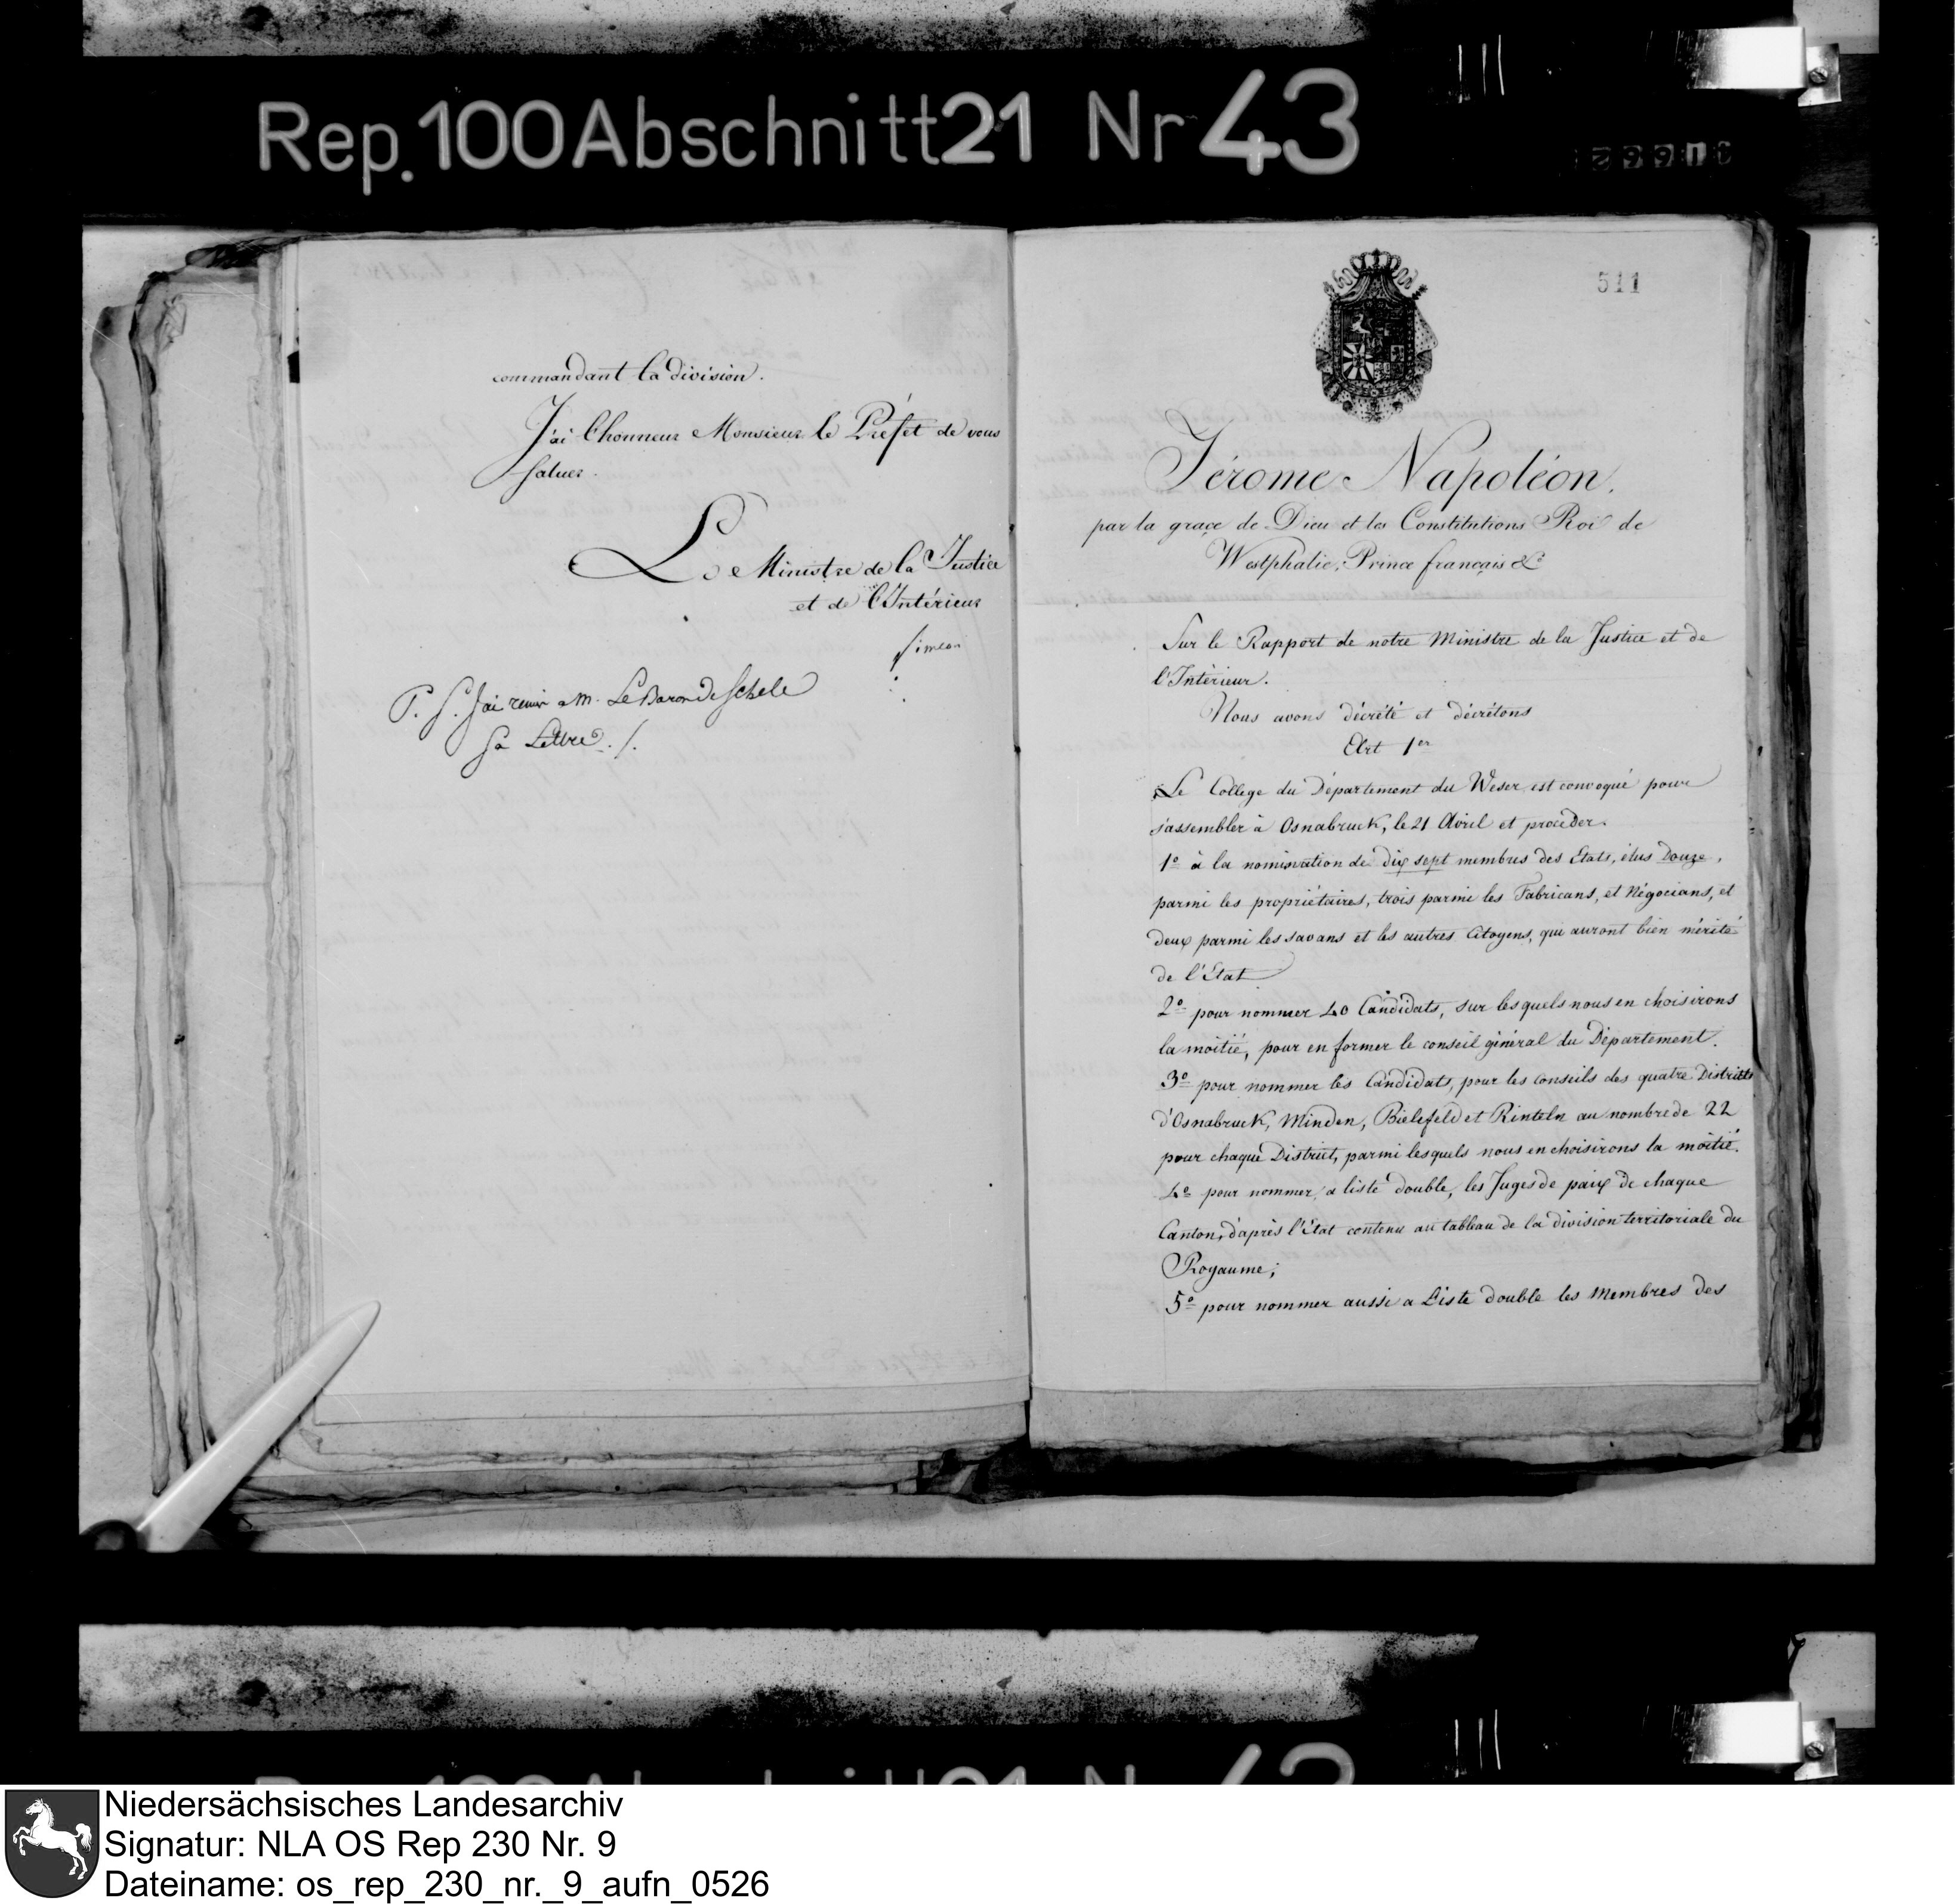 Rep. 100 Abschnitt 21 Nr 43
commandant la division.
J'ai l'honneur Monsieur le Préfet de vous
saluer.
Le Ministre de la Justice
et de l'Intérieur
Simeon
P. S. J'ai remis a M. Le Baron de Schele
sa Lettre ./.
511
Jérome Napoléon.
par la graçe de Dieu et les Constitutions Roi de
Westphalie, Prince français &c
Sur le Rapport de notre Ministre de la Justice et de
l'Intérieur.
Nous avons décrété et décrétons
Art 1er
Le College du Département du Weser est convoqué pour
s'assembler à Osnabruck, le 21 Avril et proceder.
1º à la nomination de dix sept membres des Etats, élus Douze,
parmi les propriétaires, trois parmi les Fabricans, et Négocians, et
deux parmi les savans et les autres Citoyens, qui auront bien mérité
de l'Etat
2º pour nommer 40 Candidats, sur lesquels nous en choisirons
la moitié, pour en former le conseil général du Département.
3º pour nommer les Candidats, pour les conseils des quatre Districts
d'Osnabruck, Minden, Bielefeld et Rinteln au nombre de 22
pour chaque District, parmi lesquels nous en choisirons la moitié.
4º pour nommer, a liste double, les Juges de paix de chaque
Canton, d'après l'Etat contenu au tableau de la division territoriale du
Royaume;
5º pour nommer aussi a Liste double les Membres des
Niedersächsisches Landesarchiv
Signatur: NLA OS Rep 230 Nr. 9
Dateiname: os_rep_230_nr._9_aufn_0526